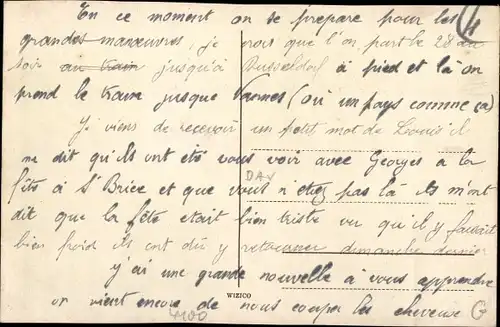 En ce moment on se prepare pour les
grandes manœuvres, je crois que l'on part le 28 au
soir au train jusqu'à Dusseldorf à pied et là on
prend le train jusque Vannes (ou un pays comme ça)
Je viens de recevoir un petit mot de Leouis il
me dit qu'ils ont été vous voir avec Georges a la
DAV
fête à St Brice et que vous n'etiez pas là ils m'ont
dit que la fête etait bien triste vu qu'il y faisait
bien froid ils ont dû y retourner dimanche dernier
y'ai une grande nouvelle à vous apprendre
on vient encore de nous couper les cheveux
WIZICO
4100